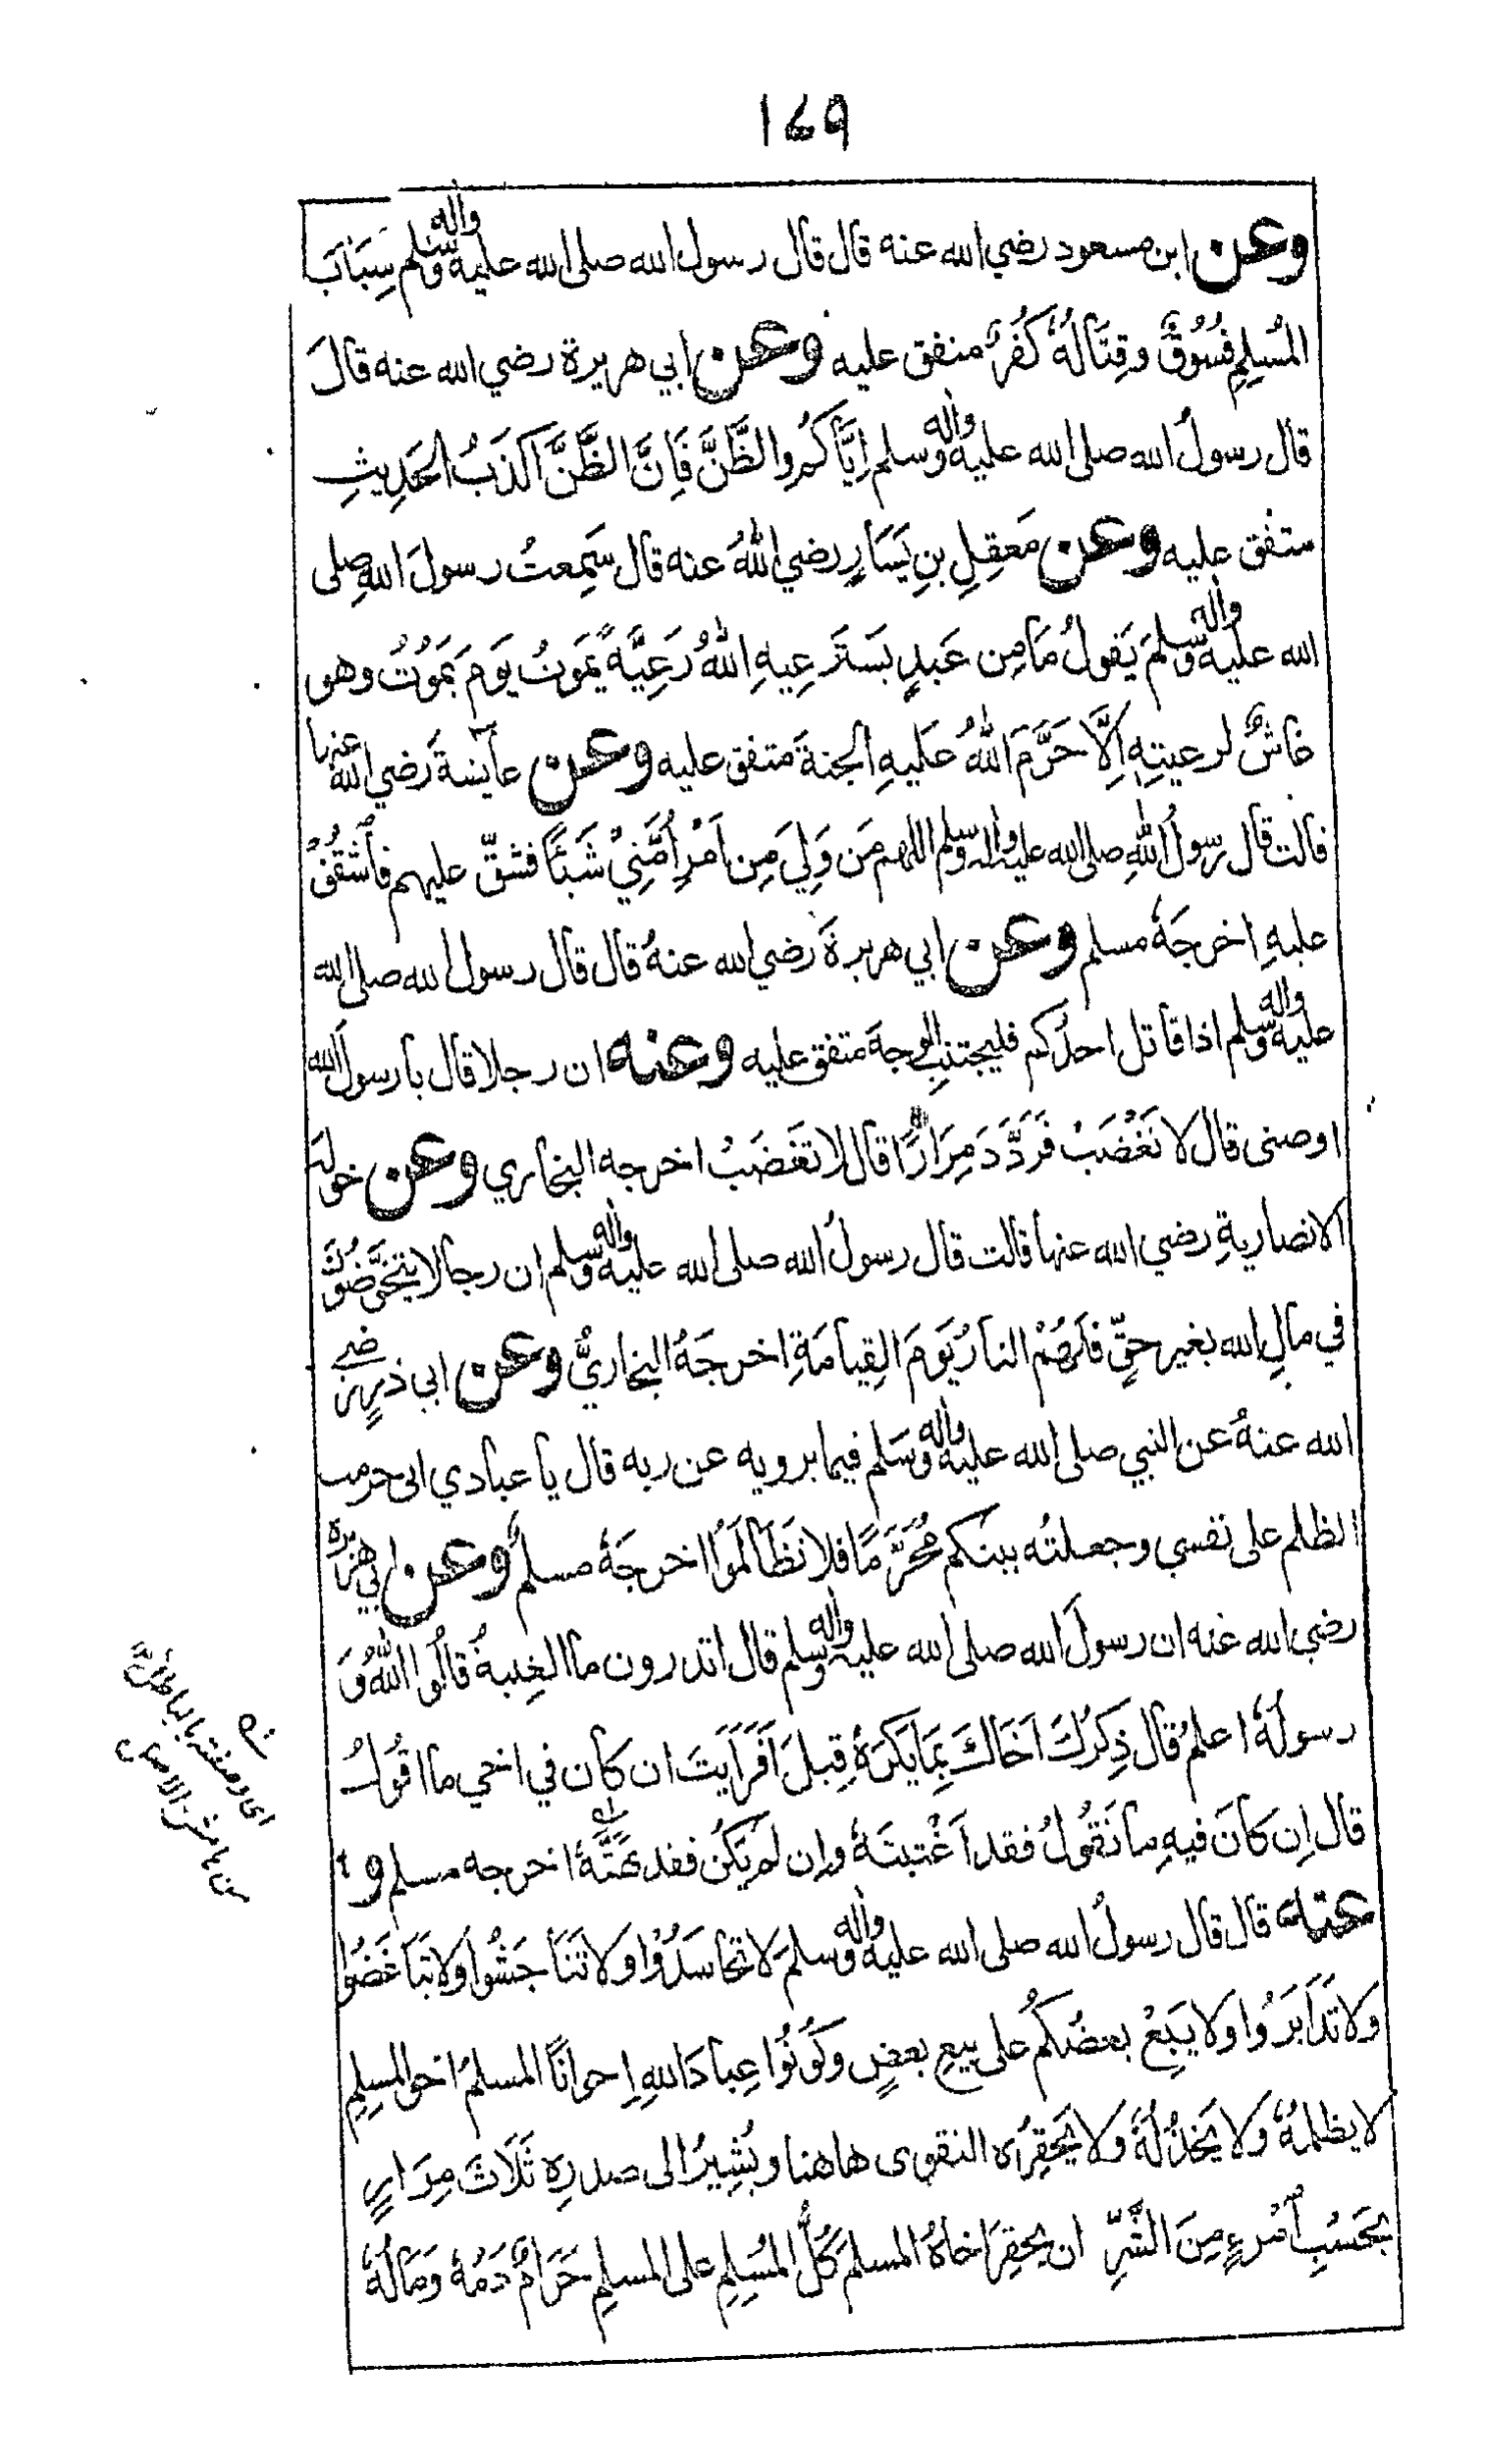 ١٤٩
وعن ابن مسعود رضي الله عنه قال قال رسول الله صلى الله عليه واله وسلم سِبَابُ
المُسْلِمِ فُسُوْقٌ وقِتَالُهُ كُفْرٌ متفق عليه وعن ابي هريرة رضي الله عنه قالَ
قال رسولُ الله صلى الله عليه واله وسلم اِيَّاكُم والظَّنَّ فَاِنَّ الظَّنَّ اَكذَبُ الحَدِيثِ
متفق عليه وعن مَعقِلِ بنِ يَسَارٍ رضي اللهُ عنه قال سَمِعتُ رسولَ اللهِ صلى
الله عليه واله وسلمَ يَقولُ مَا مِن عَبدٍ يَستَرعِيهِ اللهُ رَعِيَّةً يَمُوتُ يَومَ يَمُوْتُ وهو
غاشٌ لرعيتِهِ اِلَّا حَرَّمَ اللهُ عَليهِ الجنةَ متفق عليه وعن عآيشةَ رَضي الله عنها
قالت قال رسولُ اللهِ صلى الله عليه واله وسلم اللهم مَن وَلِيَ مِن اَمْرِ اُمَّتِيْ شَيْئًا فشقّ عليهم فَاشْقُقْ
عليهِ اخرجَهُ مسلم وعن ابي هريرةَ رضي الله عنهُ قال قال رسول الله صلى الله
عليه واله وسلم اذا قاتل احدُكم فليجتنبِ الوجهَ متفق عليه وعنه ان رجلا قال يا رسولَ الله
اوصنى قال لا تَغْضَبْ فَرَدَّدَ مِرَارًا قال لا تغضَبْ اخرجه البخاري وعن خولة
الانصاريةِ رضي الله عنها قالت قال رسولُ الله صلى الله عليه واله وسلم ان رجالا يتخَوَّضُونَ
في مالِ الله بغير حقٍّ فلَهُمُ النارُ يَومَ القِيامَةِ اخرجَهُ البخاريُّ وعن ابي ذرٍ رضي
الله عنهُ عن النبي صلى الله عليه واله وسَلم فيما يرويه عن ربه قال يا عبادي انى حرمت
الظلم على نفسي وجعلتُه بينكم مُحَرَّمًا فلا تَظَالَمُوا اخرجَهُ مسلم وعن ابي هريرة
رضي الله عنه ان رسولَ الله صلى الله عليه واله وسلم قال اتدرون ما الغِيبةُ قالُوا اللهُ وَ
رسولُهُ اعلمُ قال ذِكرُكَ اَخَاكَ بِمَا يَكرَهُ قِيلَ اَفَرَاَيتَ ان كان في اخي ما اقُولُ
قال اِن كَانَ فيهِ ما تَقُولُ فقد اغْتبتَهُ وان لم يَكُن فقد بَهَتَّهُ اخرجه مسلم و
عنه قال قال رسولُ الله صلى الله عليه واله وسلمَ لا تحاسَدُوْا ولا تَنَاجَشُوا ولا تَبَاغَضُوا
ولا تَدَابَرُوا ولا يَبِعْ بعضُكُم على بيعِ بعضٍ وكُونُوا عِبادَ اللهِ اِخوانًا المسلمُ اخو المسلِمِ
لا يظلمهُ ولا يَخذُلُهُ ولا يَحقِرُه التقوى هاهنا ويُشِيرُ الى صدرِه ثَلَاثَ مِرَارٍ
بحَسْبِ امْرءٍ مِنَ الشَّرِّ ان يحقِرَ اخاهُ المسلمَ كُلُّ المُسْلِمِ على المسلمِ حَرَامٌ دَمُهُ وَمَالُهُ